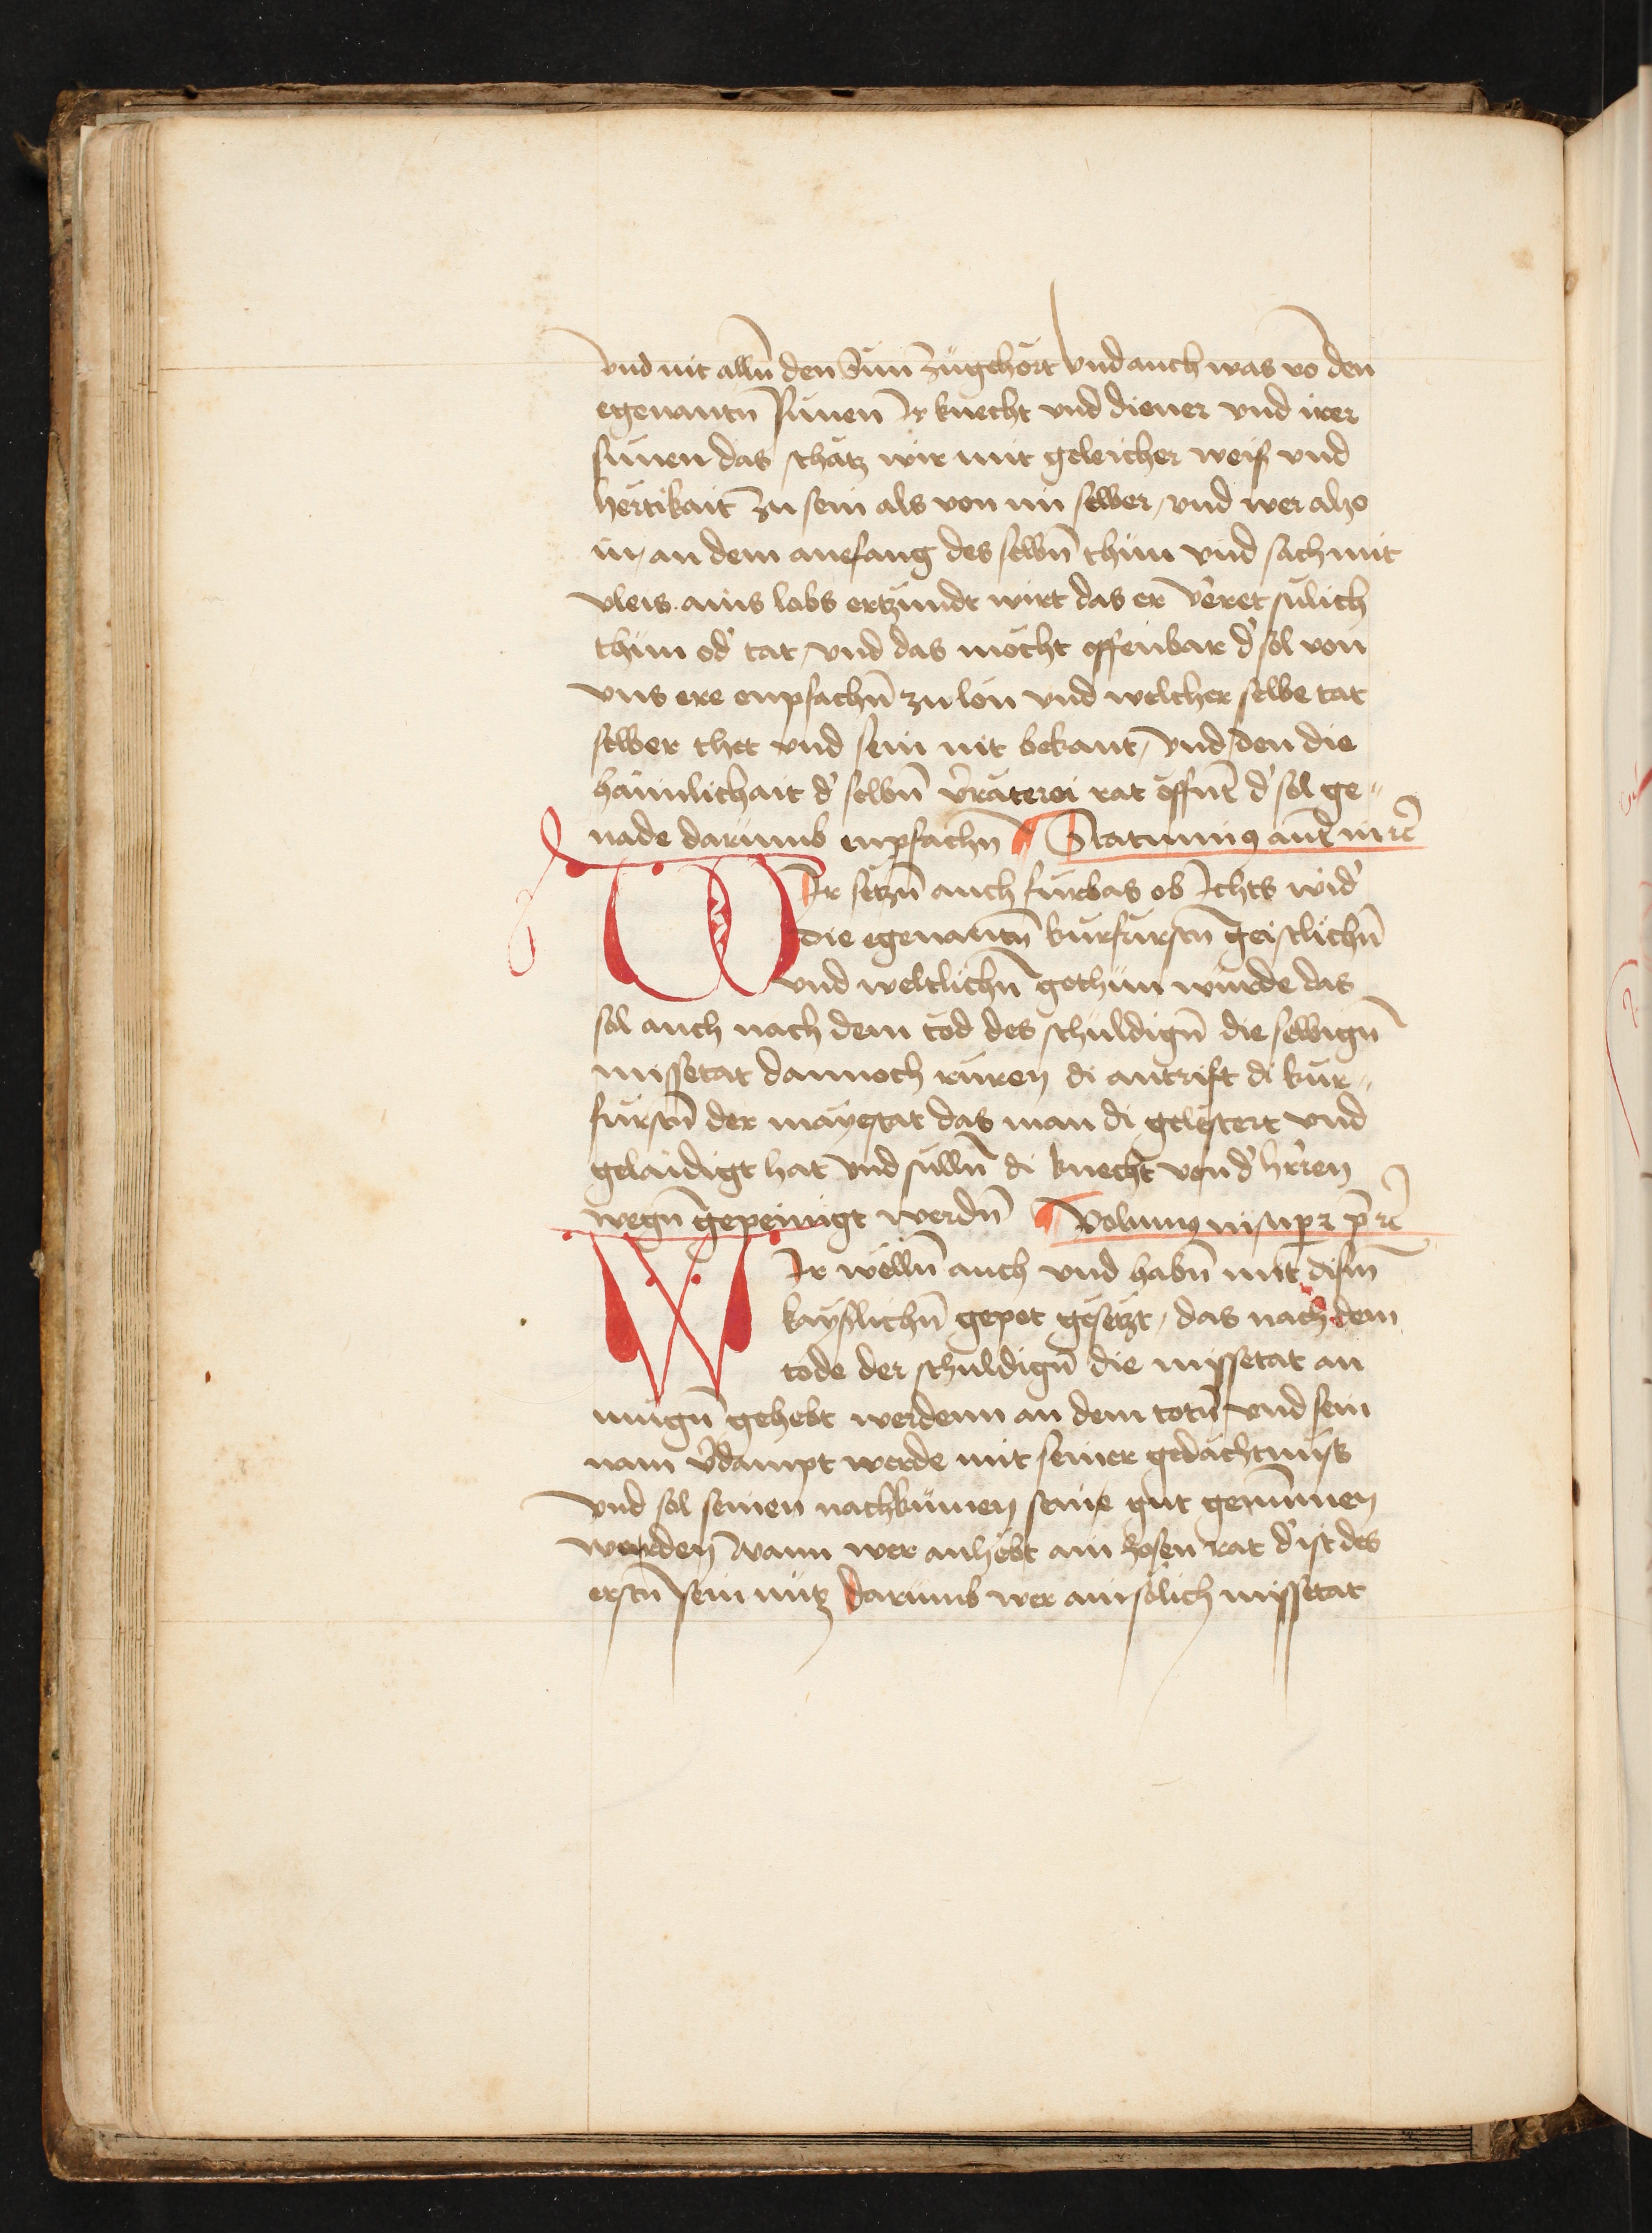 vnd mit alln̄ den Sün Zügehört vnd auch was vō den
egenantn̄ Sünen Ir knecht vnd diener vnd irer
sünen das schatz wir mit geleicher weiß vnd
hertikait zu sein als von im selber / vnd wer alzo
in / an dem anefang des selbn̄ thün vnd sach mit
vleis ains lobs ertzündt wirt das er v̓ret sülich
thün od̓ tat / vnd das möcht offenbar d̓ sol von
vns ere enpfachn̄ zu lön vnd welcher selbe tat
selber thet vnd sein nit bekant / vnd / den die
haimlichait d̓ selbn̄ v̓räterei rat öffnt d̓ sol ge-
nade darümb enpfachn̄ Statuimꝯ aut̄ in rē
WIr setzn̄ auch fürbas ob Ichts wid̓
die egenantn̄ kurfürstn̄ geistlichn̄
vnd weltlichn̄ gethün würde das
sol auch nach dem tod des schuldign̄ die selbign̄
missetat dannoch rüren di antrift di kür-
fürstn̄ der mayestat das man di gelestert vnd
gelaidigt hat vnd sülln̄ di knecht von d̓ hr̄ren
wegn̄ gepeinigt werdn̄ Volumꝯ insupꝛ p̄ rē
WIr wölln̄ auch vnd habn̄ mit dism̄
kayslichn̄ gepot gesetzt / das nach dem
tode der schuldign̄ die missetat an
mügn̄ gehebt werdenn an dem totn̄ vnd sein
nam v̓dampt werde mit seiner gedächtnüß
vnd sol seinen nachkümen seine gut genūmen
werden wann wer anhebt ain bosen rat d̓ ist des
erstn̄ sein nütz darümb wer ain sölich missetat